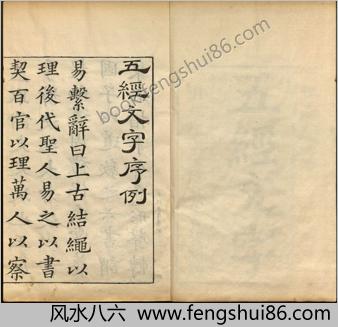 五經文字序例
易繫辭曰上古結繩以
理後代聖人易之以書
契百官以理萬人以察
bookfengshui86.com
风水八六 www.fengshui86.com